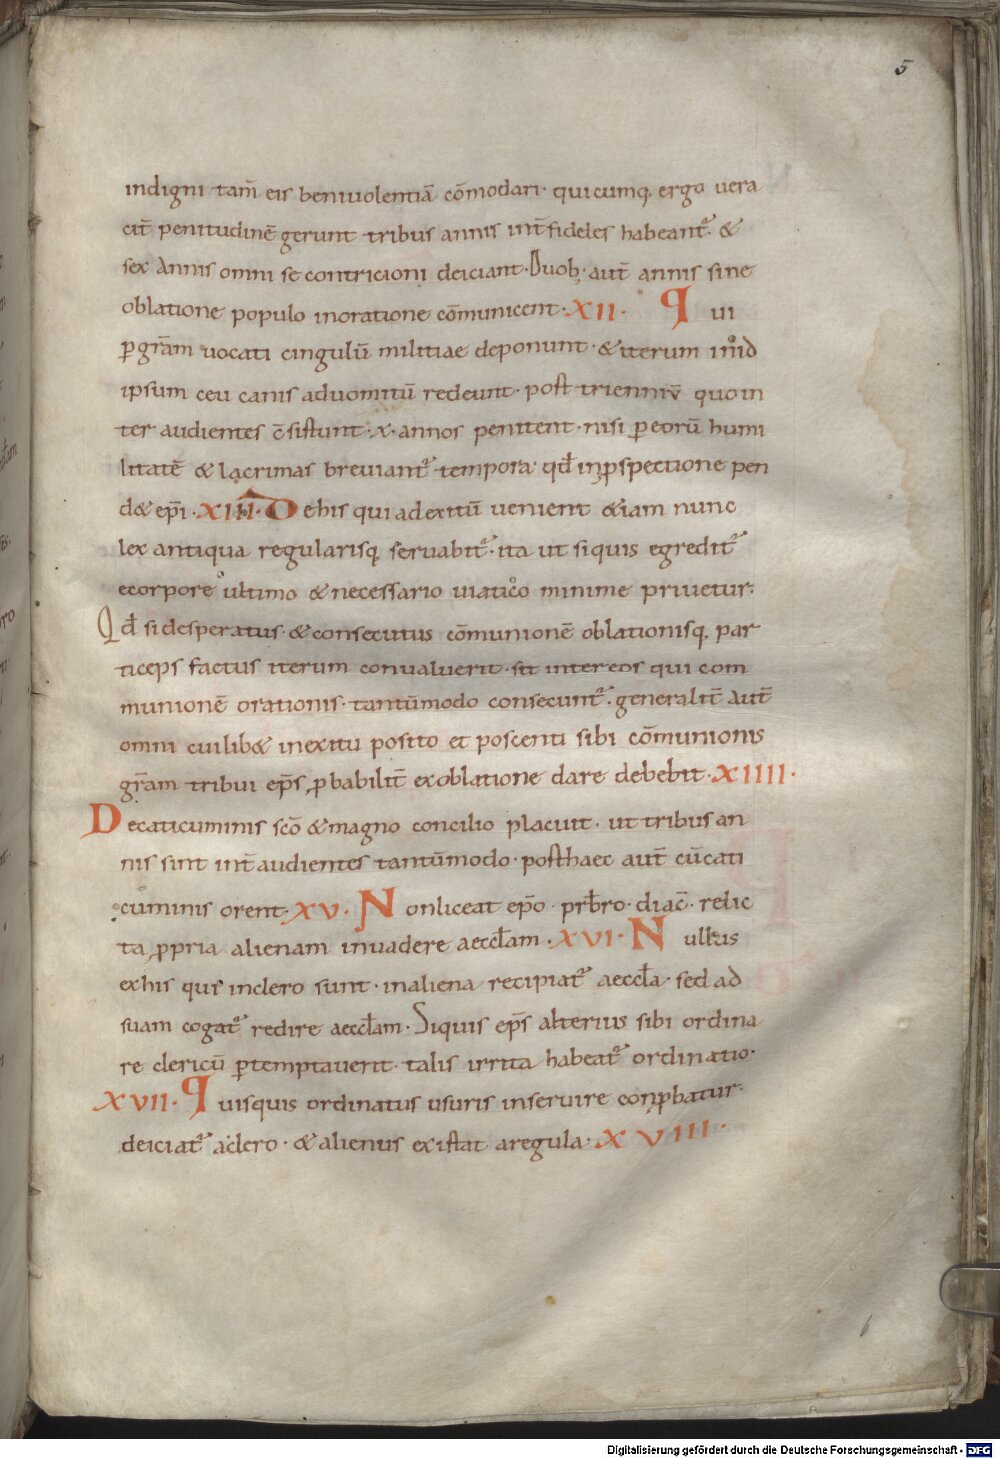 5
indigni tam̄ eis beniuolentiā cōmodari· quicumq; ergo uera
cit̄ penitudinē gerunt tribus annis int̄ fideles habeant᷑· &
sex annis omni se contricioni deiciant· Duob; aut̄ annis sine
oblatione populo inoratione cōmunicent· XII· Q ui
ꝑ gr̄am uocati cingulū militiae deponunt· & iterum in id
ipsum ceu canis aduomitū redeunt· post trienniū quo in
ter audientes c̄sistunt· x· annos penitent· nisi ꝑ eorū humi
litatē & lacrimas breuiant᷑ tempora· qd̄ inꝓspectione pen
d& ep̄i· XIII· D ehis qui ad exitū uenient &iam nunc
lex antiqua regularisq; seruabit᷑· ita ut siquis egredit᷑
ecorpore ultimo & necessario uiatico minime priuetur·
Qd̄ si desperatus· & consecutus cōmunionē oblationisq; par
ticeps factus iterum conualuerit· sit inter eos qui com
munionē orationis· tantūmodo consecunt᷑· generalit̄ aut̄
omni cuilib& inexitu posito et poscenti sibi cōmunionis
gr̄am tribui ep̄s ꝓbabilit̄ exoblatione dare debebit· XIIII·
Decaticuminis sc̄o & magno concilio placuit· ut tribus an
nis sint int̄ audientes tantūmodo· posthaec aut̄ cū cati
cuminis orent· XV· N onliceat ep̄o· prb̄ro· diac̄· relic
ta ꝓpria alienam inuadere aeccl̄am· XVI· N ullus
exhis qui inclero sunt· inaliena recipiat᷑ aeccl̄a· sed ad
suam cogat᷑ redire aeccl̄am· Siquis ep̄s alterius sibi ordina
re clericū ꝑtemptauerit· talis irrita habeat᷑ ordinatio·
XVII· Q uisquis ordinatus usuris inseruire conꝓbatur·
deiciat᷑ aclero· & alienus existat aregula· XVIII·
6
Digitalisierung gefördert durch die Deutsche Forschungsgemeinschaft - DFG